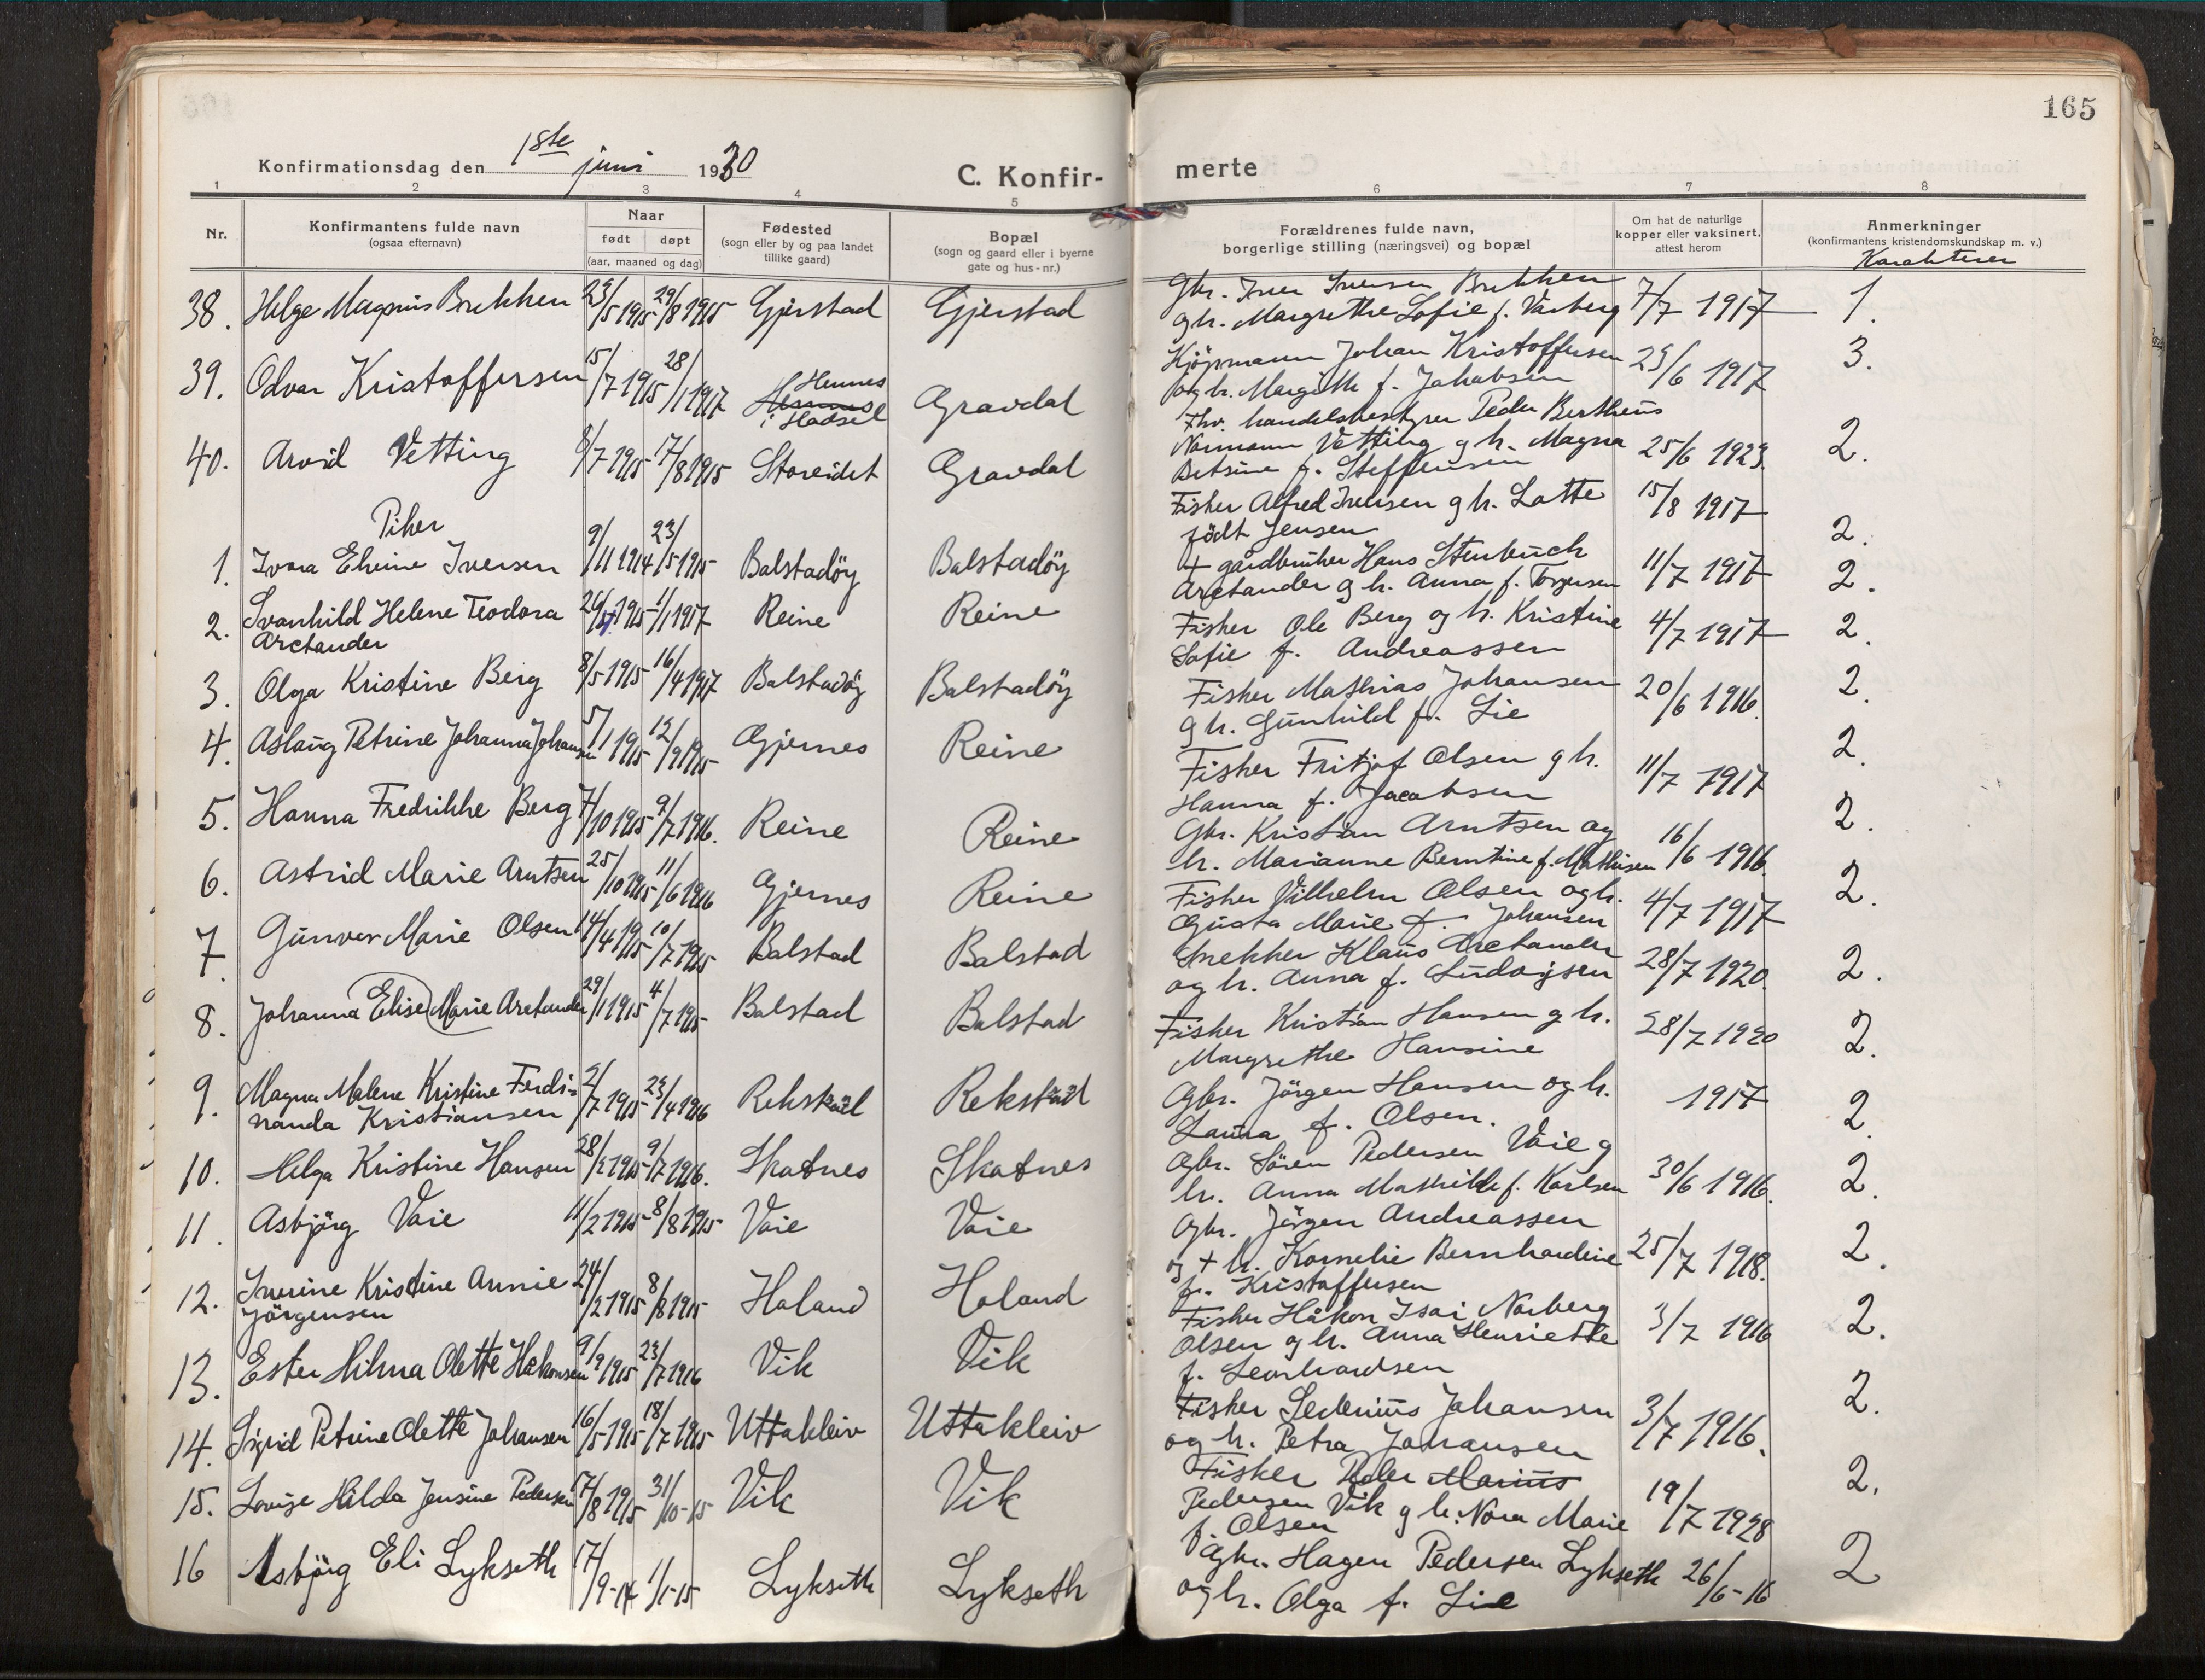 165
Konfirmationsdag den 1ste juni 1930
C. Konfir-
merte
1 2 3 4 5 6 7 8
Nr.
Konfirmantens fulde navn
(ogsaa efternavn)
Naar
født døpt
(aar, maaned og dag)
Fødested
(sogn eller by og paa landet
tillike gaard)
Bopæl
(sogn og gaard eller i byerne
gate og hus-nr.)
Forældrenes fulde navn,
borgerlige stilling (næringsvei) og bopæl
Om hat de naturlige
kopper eller vaksinert,
attest herom
Anmerkninger
(konfirmantens kristendomskundskap m. v.)
Karakterer
38. Helge Magnus Brekken 29/8 1915 Gjerstad Gjerstad
Gbr. Iver Iversen Brekken
g h. Margrethe Sofie f. Varberg 7/7 1917 1.
39. Odvar Kristoffersen 15/7 1915 28/1 1917 Hennes
i Hadsel Gravdal
Kjöpmann Johan Kristoffersen
og h. Margith f. Jakobsen 29/6 1917 3.
40. Arvid Vetting 8/7 1915 17/8 1915 Storeidet Gravdal
Fhv. handelsbestyrer Peder Bertheus
Normann Vetting g h. Magna
Betsine f. Steffensen 25/6 1923. 2.
Piker
1. Ivara Eline Iversen 9/11 1914 23/5 1915 Balstadöy Balstadöy
Fisker Alfred Iversen g h. Lotte
födt Jensen 15/8 1917 2.
2. Svanhild Helene Teodora
Arctander 1915 1/1 1917 Reine Reine
+ gårdbruker Hans Stenbuch
Arctander g h. Anna f. Torgersen 11/7 1917 2.
3. Olga Kristine Berg 8/5 1915 16/4 1917 Balstadöy Balstadöy
Fisker Ole Berg og h. Kristine
Sofie f. Andreassen 4/7 1917 2.
4. Aslaug Petrine Johanna Johansen 5/1 1915 12/9 1915 Gjernes Reine
Fisker Mathias Johansen
g h. Gunhild f. Lie 20/6 1916. 2.
5. Hanna Fredrikke Berg 7/10 1915 9/7 1916. Reine Reine
Fisker Fritjof Olsen g h.
Hanna f. Jacobsen 11/7 1917 2.
6. Astrid Marie Arntsen 25/10 1915 11/6 1916 Gjernes Reine
Gbr. Kristian Arntsen og
h. Marianne Berntine f. Mathisen 16/6 1916. 2.
7. Gunvor Marie Olsen 14/4 1915 10/7 1915 Balstad Balstad
Fisker Vilhelm Olsen og h.
Gusta Marie f. Johansen 4/7 1917 2.
8. Johanna Elise Marie Arctander 29/1 1915 4/7 1915 Balstad Balstad
Snekker Klaus Arctander
og h. Anna f. Ludvigsen 28/7 1920. 2.
9. Magna Malene Kristine Ferdi-
nanda Kristiansen 2/7 1915 23/4 1916 Rekstad Rekstad
Fisker Kristian Hansen g h.
Margrethe Hansine 28/7 1920 2.
10. Helga Kristine Hansen 28/2 1915 9/7 1916. Skotnes Skotnes
Gbr. Jörgen Hansen og h.
Laura f. Olsen. 1917 2.
11. Asbjörg Vaie 11/2 1915 8/8 1915 Vaie Vaie
Gbr. Sören Pedersen Vaie g
h. Anna Mathilde f. Karlsen 30/6 1916. 2.
12. Iverine Kristine Annie
Jörgensen 24/2 1915 8/8 1915 Holand Holand
Gbr. Jörgen Andreassen
og + h. Kornelie Bernhardine
f. Kristoffersen 25/7 1918. 2.
13. Ester Hilma Olette Håkonsen 9/9 1915 23/7 1916 Vik Vik
Fisker Håkon Isai Norberg
Olsen g h. Anna Henriette
f. Leonhardsen 3/7 1916 2.
14. Sigrid Petrine Olette Johansen 16/5 1915 18/7 1915 Uttakleiv Uttakleiv
Fisker Sedenius Johansen
og h. Petra Johansen 3/7 1916. 2.
15. Lovise Hilda Jensine Pedersen 17/8 1915 31/10-15 Vik Vik
Fisker Peder Marius
Pedersen Vik g h. Nora Marie
f. Olsen 19/7 1928 2.
16 Asbjörg Eli Lykseth 17/9-14 1/1-15 Lykseth Lykseth
Gbr. Hagen Pedersen Lykseth
og h. Olga f. Lie 26/6-16 2